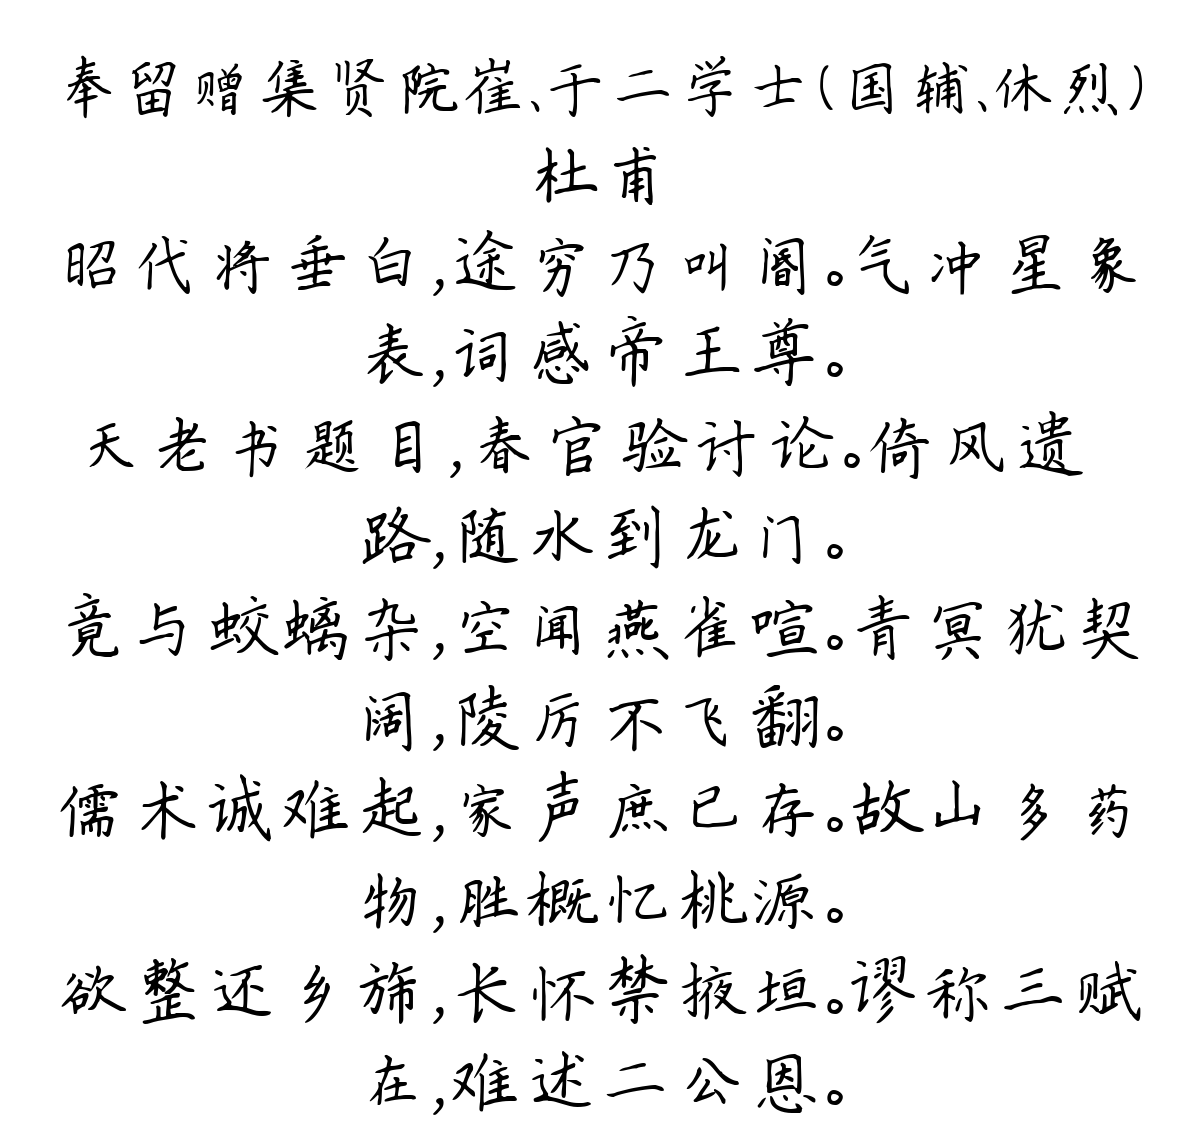 奉留赠集贤院崔、于二学士(国辅、休烈)
杜甫
昭代将垂白,途穷乃叫阍。气冲星象
表,词感帝王尊。
天老书题目,春官验讨论。倚风遗
路,随水到龙门。
竟与蛟螭杂,空闻燕雀喧。青冥犹契
阔,陵厉不飞翻。
儒术诚难起,家声庶已存。故山多药
物,胜概忆桃源。
欲整还乡旆,长怀禁掖垣。谬称三赋
在,难述二公恩。